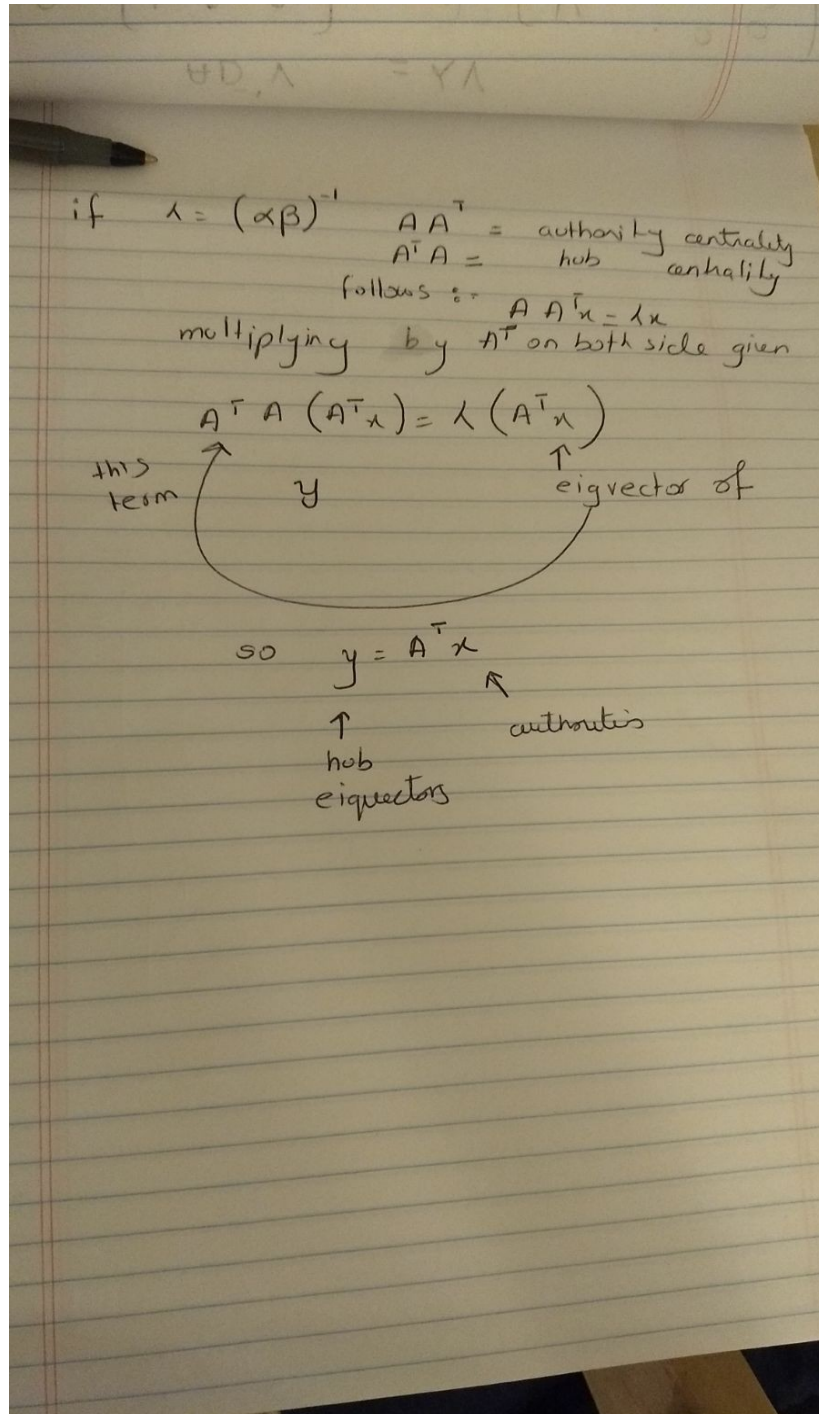 if λ = (αβ)⁻¹ A Aᵀ = authority centrality
AᵀA = hub centrality
follows :- A Aᵀx = λx
multiplying by Aᵀ on both side given
Aᵀ A (Aᵀx) = λ (Aᵀx)
↑ ↑
this term y eigvector of
so y = Aᵀ x
↑ authoritis
hub
eigvectors